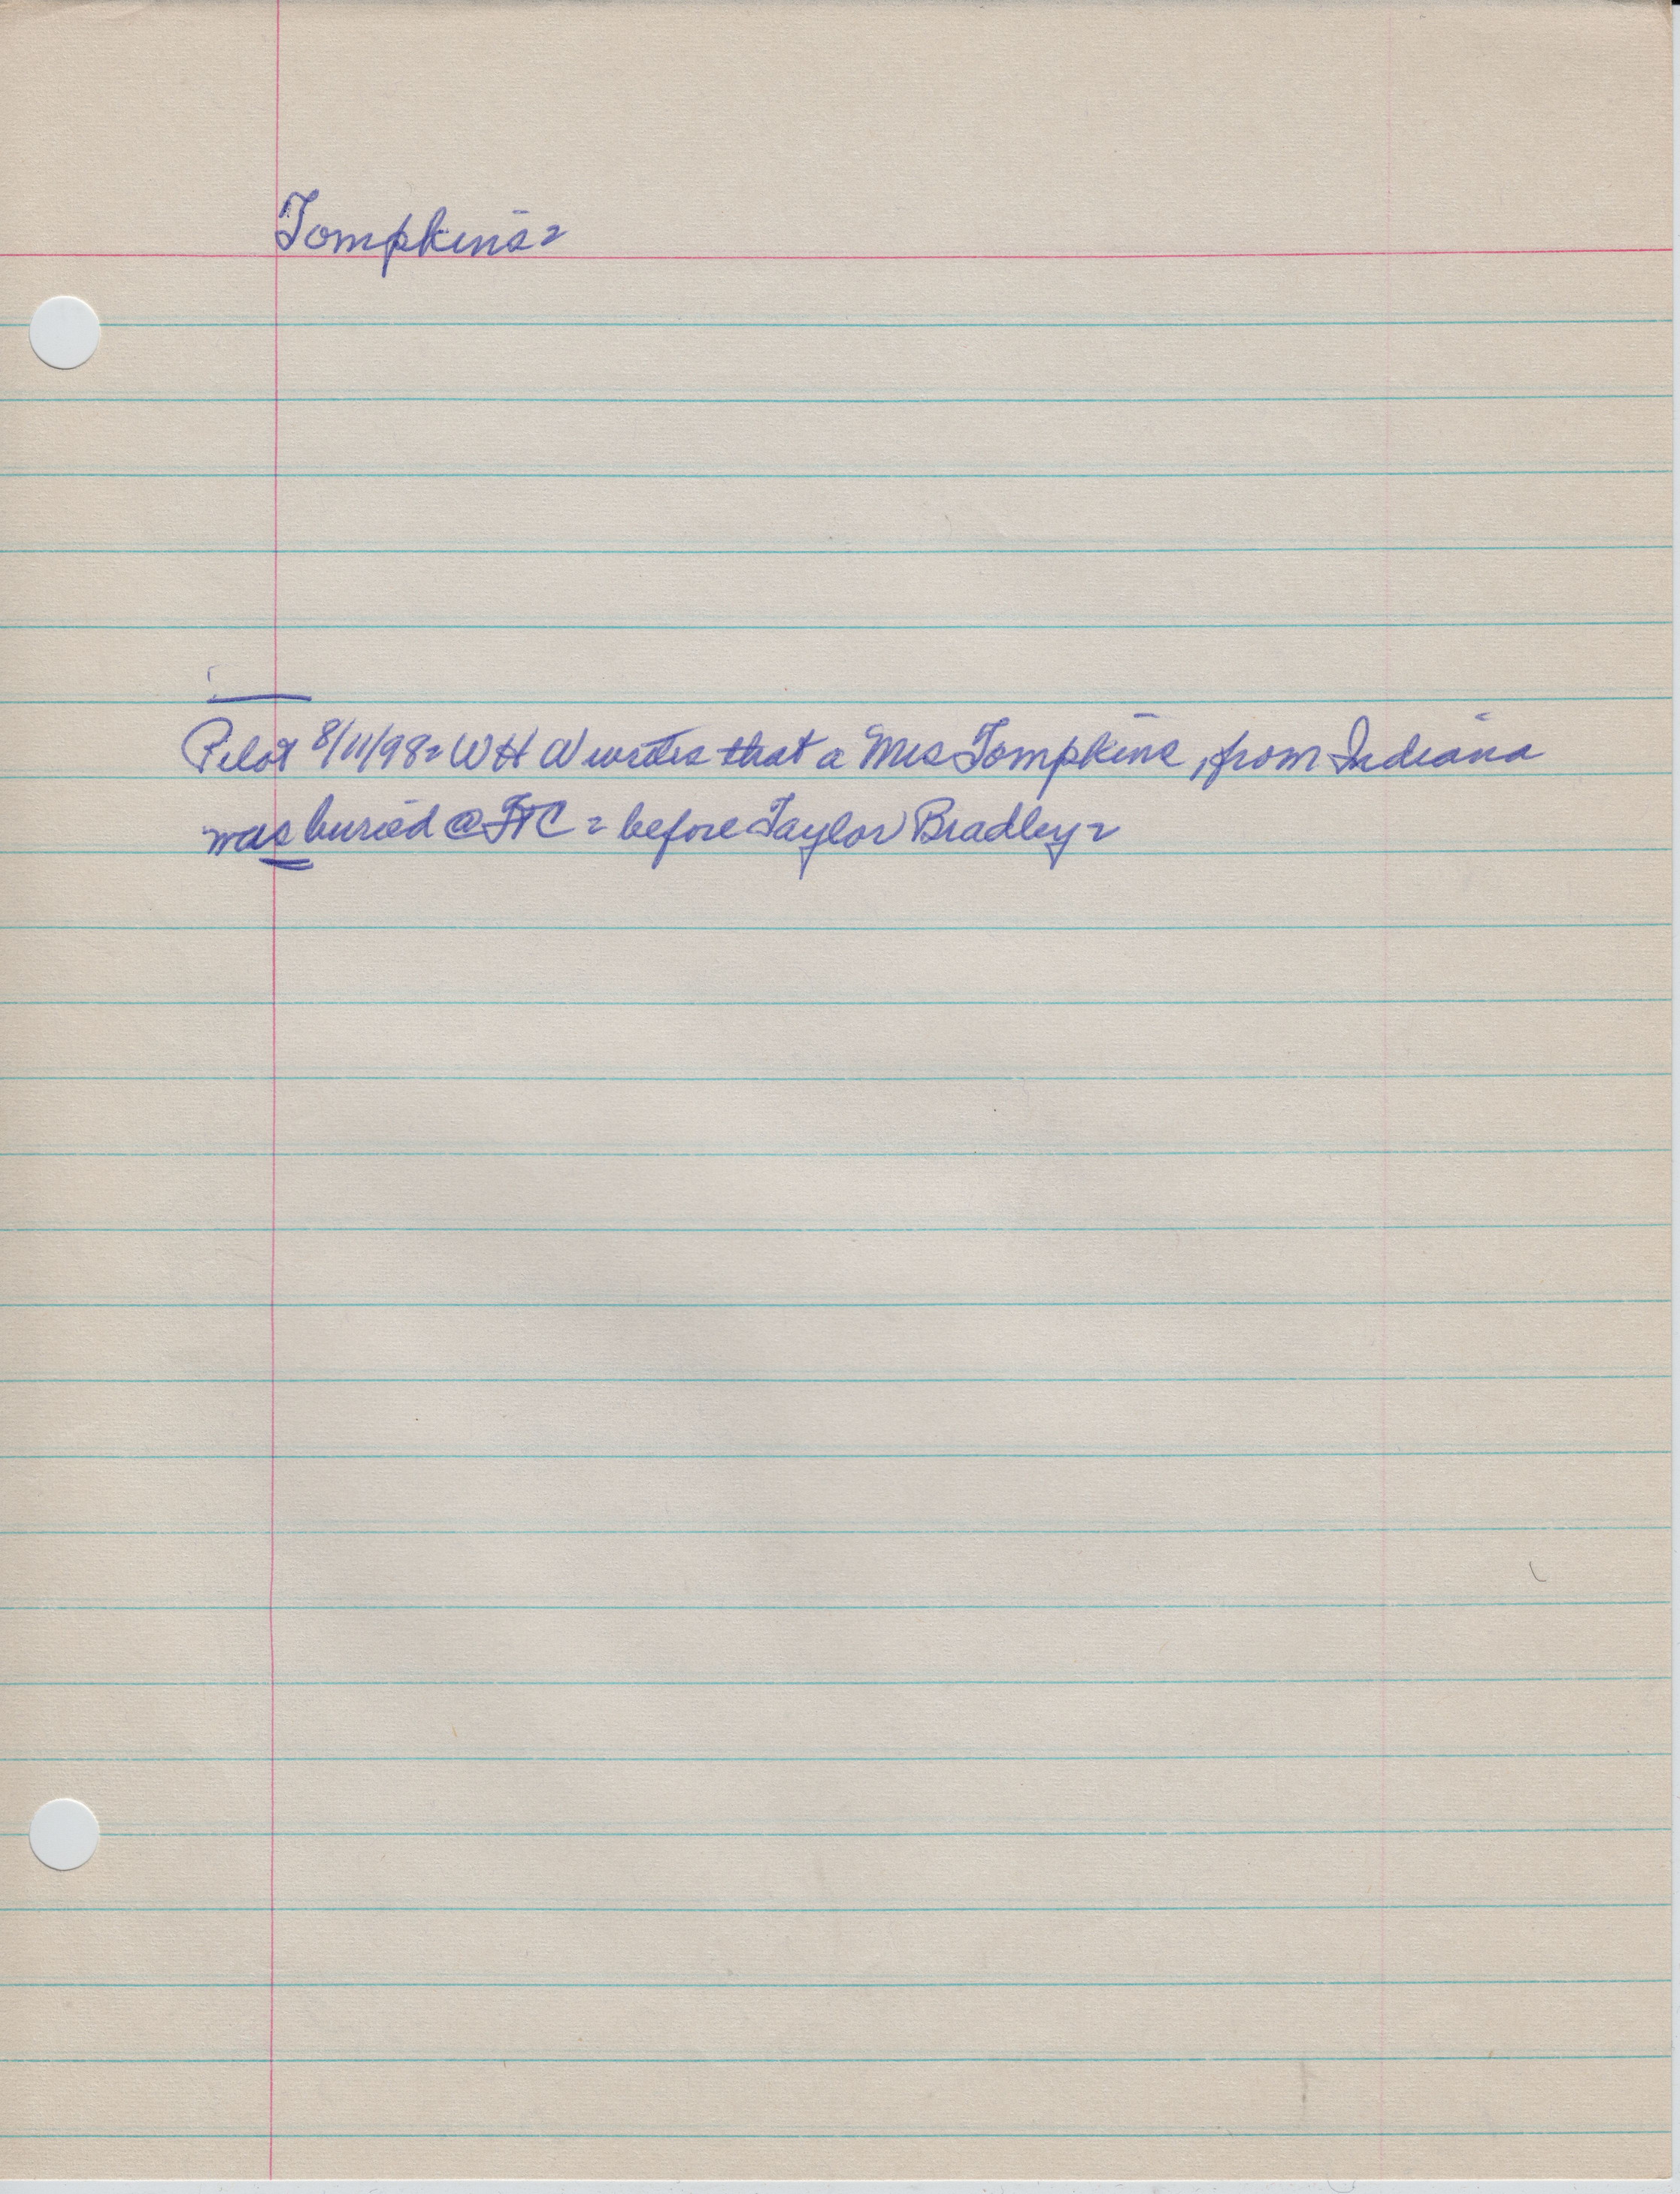 Tompkins=
Pilot 8/11/98= WH W writes that a Mrs Tompkins, from Indiana
was buried @ FTC = before Taylor Bradley=